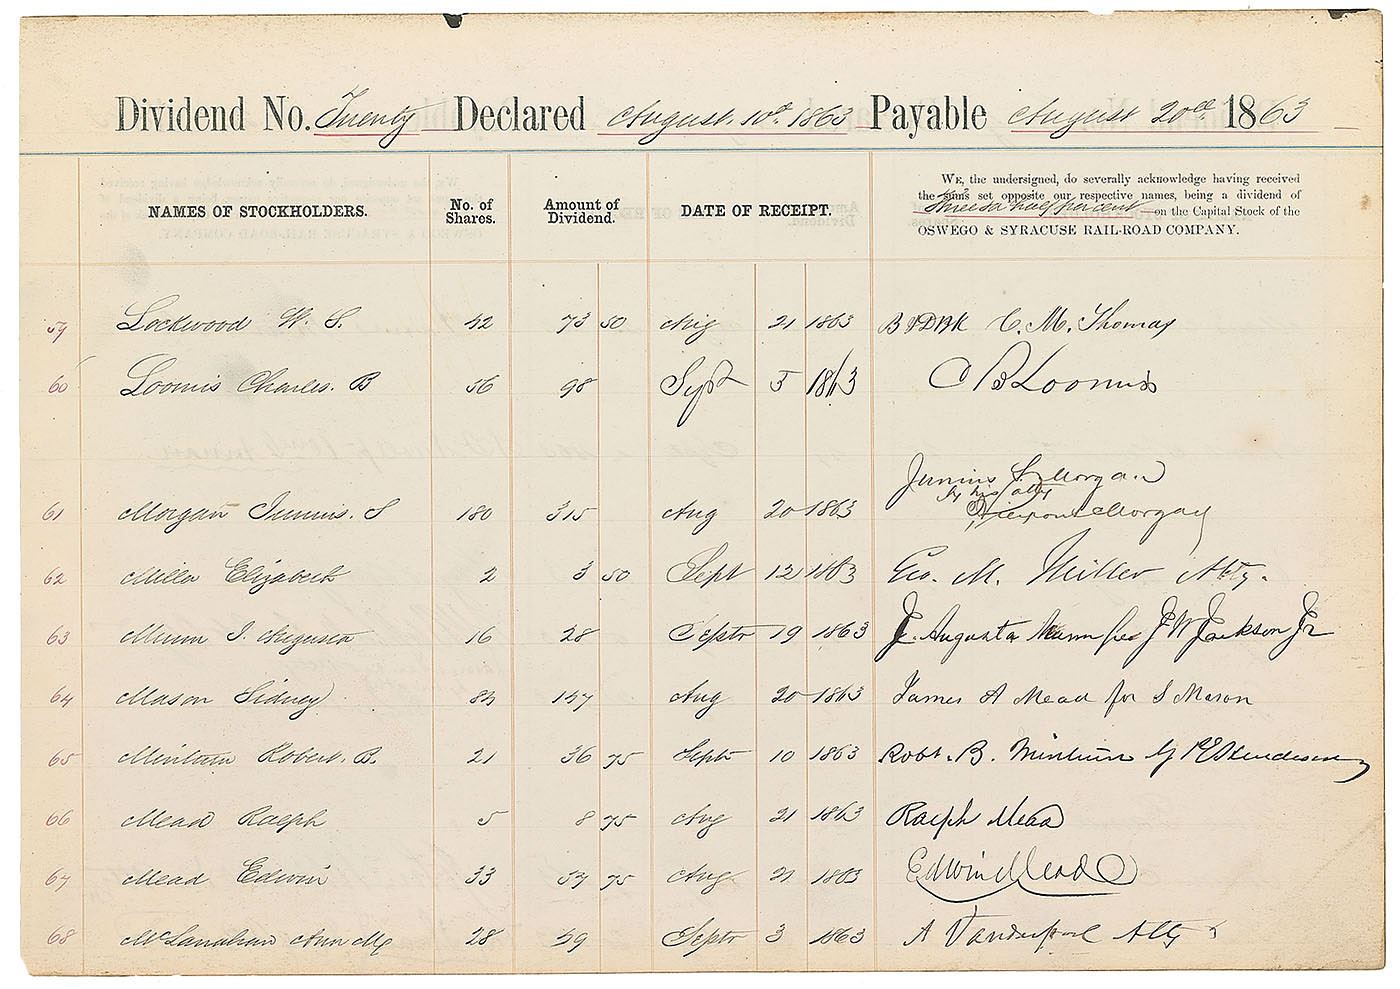 Dividend No. Twenty Declared August. 10th. 1863 Payable August 20th 1863
WE, the undersigned, do severally acknowledge having received
the sums set opposite our respective names, being a dividend of
Three & a half per cent on the Capital Stock of the
OSWEGO & SYRACUSE RAIL-ROAD COMPANY.
NAMES OF STOCKHOLDERS. No. of Shares. Amount of Dividend. DATE OF RECEIPT.
59 Lockwood W. S. 42 73 50 Aug 21 1863 C. M. Thomas
60 Loomis Charles. B 56 98 Sept 5 1863 C B Loomis
Junius S Morgan
by his atty
61 Morgan Junius. S 180 315 Aug 20 1863 J Pierpont Morgan
62 Miller Elizabeth 2 3 50 Sept 12 1863 Geo. M. Miller Atty.
63 Munn J. Augusta 16 28 Septr 19 1863 J. Augusta Munn per J W Jackson Jr
64 Mason Sidney 84 147 Aug 20 1863 James A Mead for S Mason
65 Minturn Robert. B. 21 36 75 Septr 10 1863 Robt. B. Minturn by Henderson
66 Mead Ralph 5 8 75 Aug 21 1863 Ralph Mead
67 Mead Edwin 33 57 75 Aug 21 1863 Edwin Mead
68 McLanahan Ann 28 49 Septr 3 1863 A Vanderpoel Atty